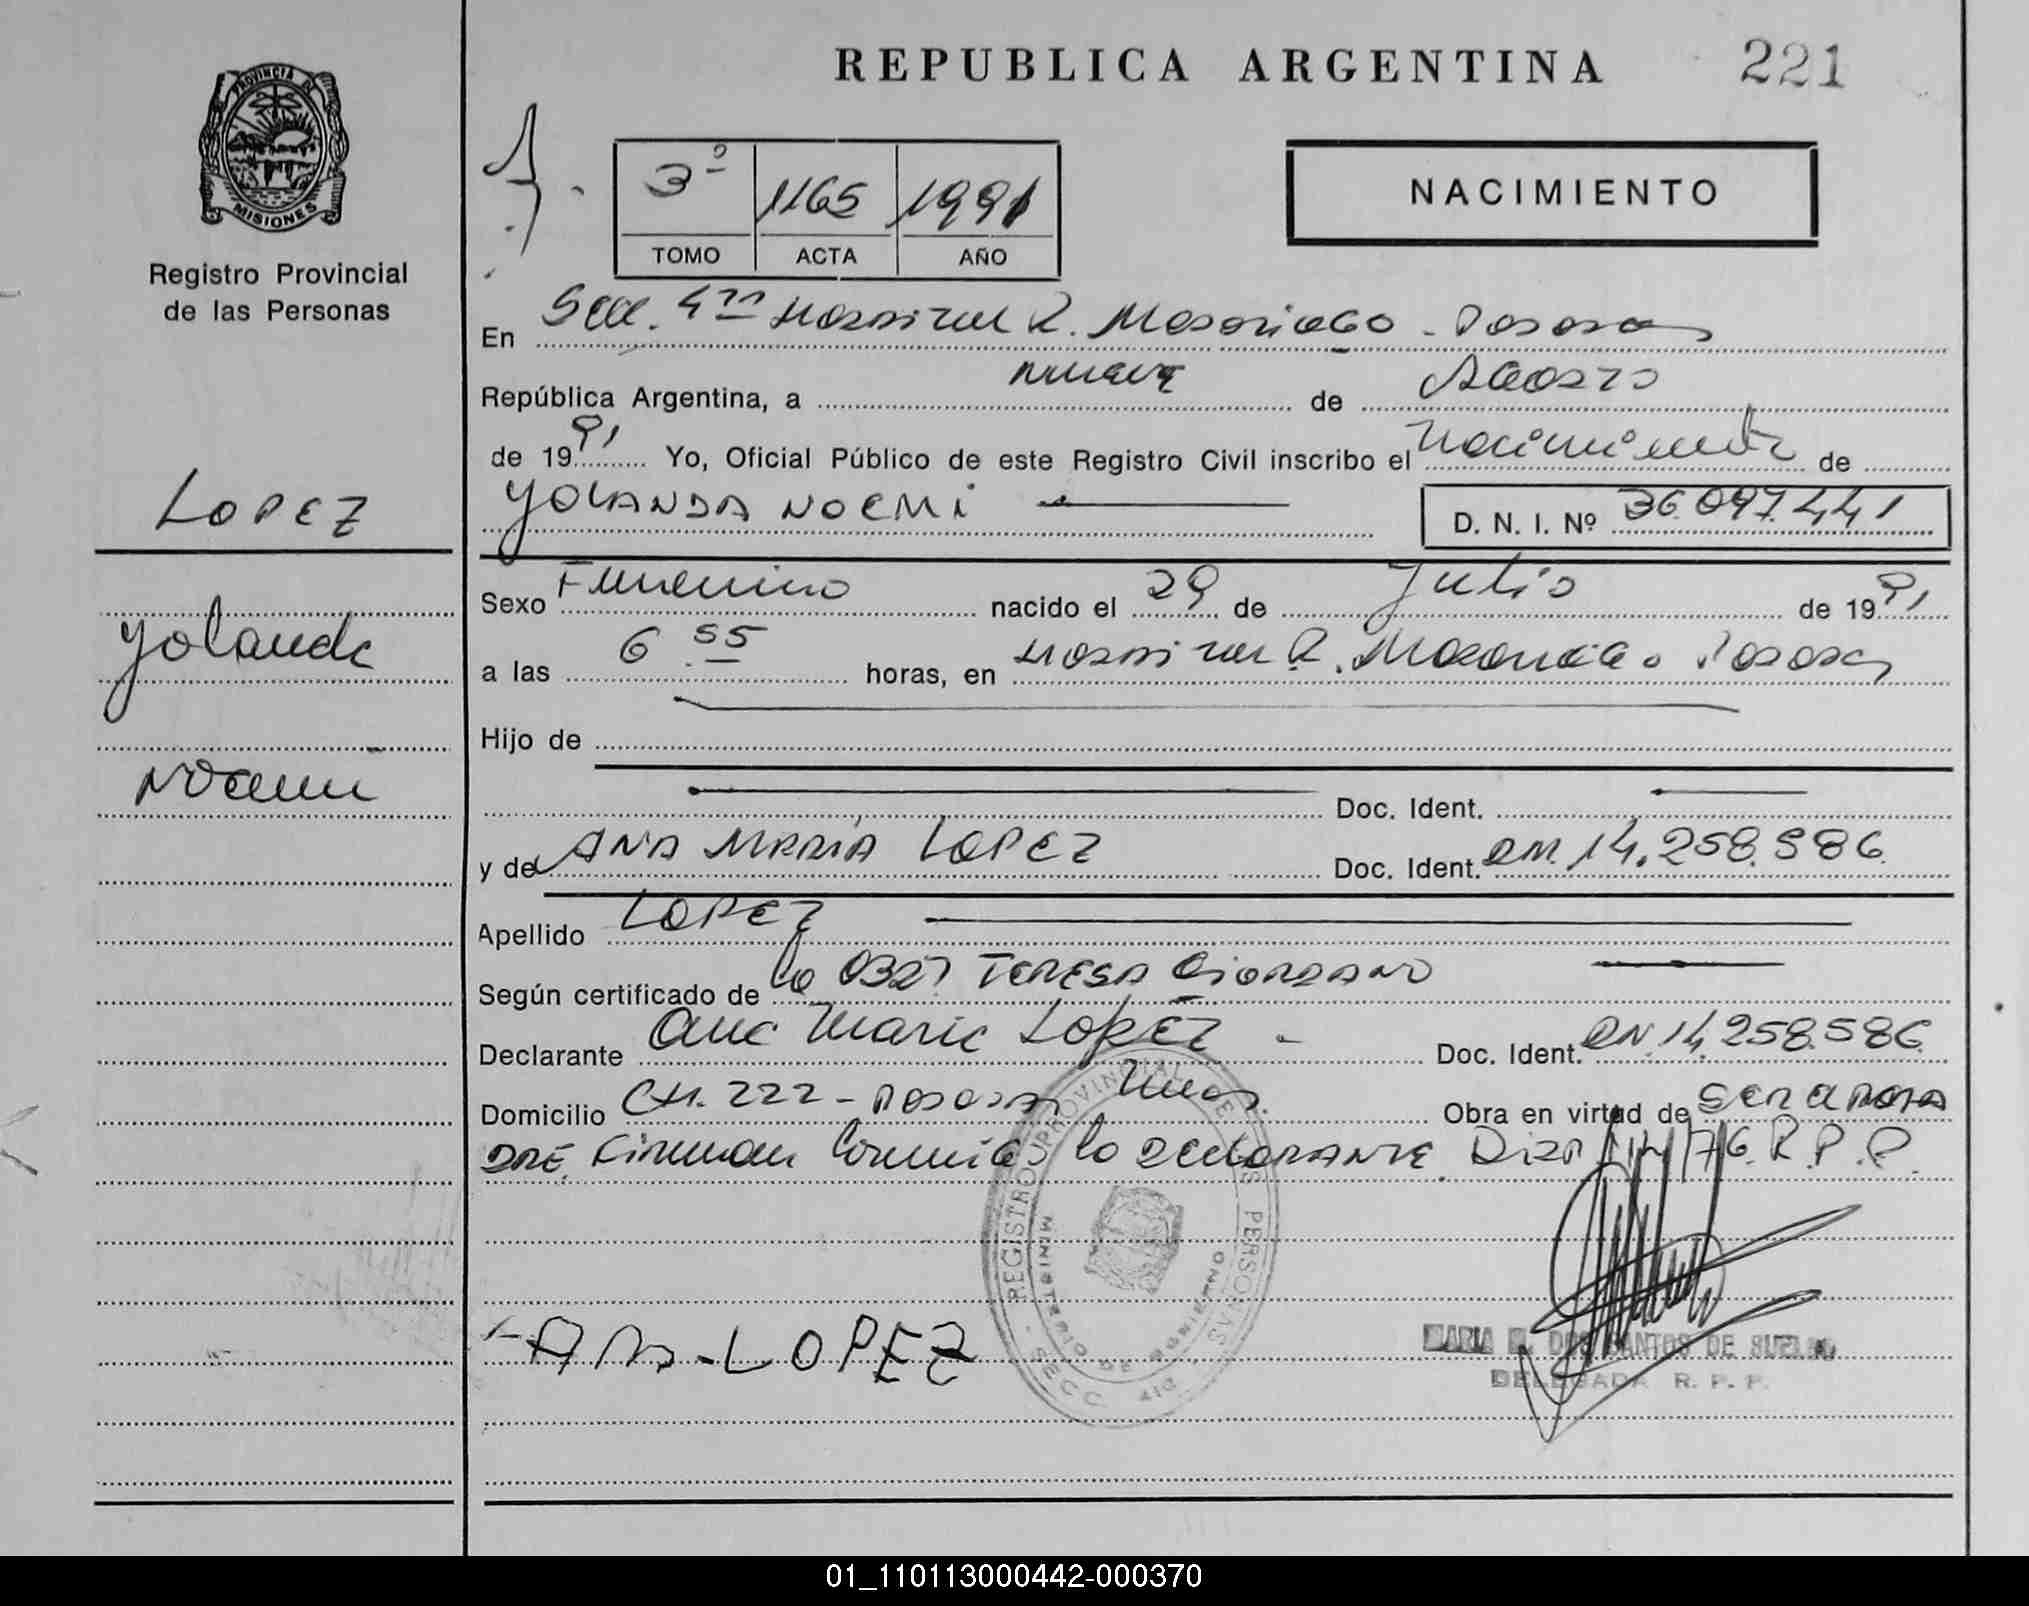 REPUBLICA ARGENTINA 221
PROVINCIA DE
MISIONES
Registro Provincial
de las Personas
3º 1165 1991
TOMO ACTA AÑO
NACIMIENTO
En Secc. 4ta Hospital R. Madariaga - Posadas
República Argentina, a nueve de Agosto
de 1991 Yo, Oficial Público de este Registro Civil inscribo el Nacimiento de
YOLANDA NOEMI D. N. I. Nº 36.097.441
LOPEZ
Yolanda
Noemi
Sexo Femenino nacido el 29 de Julio de 1991
a las 6.55 horas, en Hospital R. Madariaga. Posadas
Hijo de
Doc. Ident.
y de ANA MARÍA LOPEZ Doc. Ident. DNI. 14.258.586
Apellido LOPEZ
Según certificado de la OBST TERESA GIORDANO
Declarante Ana Maria LOPEZ - Doc. Ident. DNI. 14.258.586
Domicilio CH. 222 - Posadas Mnes. Obra en virtud de ser la
Firman Conmigo la declarante. Disp 76. R. P. P.
REGISTRO PROVINCIAL DE LAS PERSONAS
MINISTERIO DE GOBIERNO
SECC. 4ta
ANA - LOPEZ
MARIA DOS SANTOS DE
DELEGADA R. P. P.
01_110113000442-000370